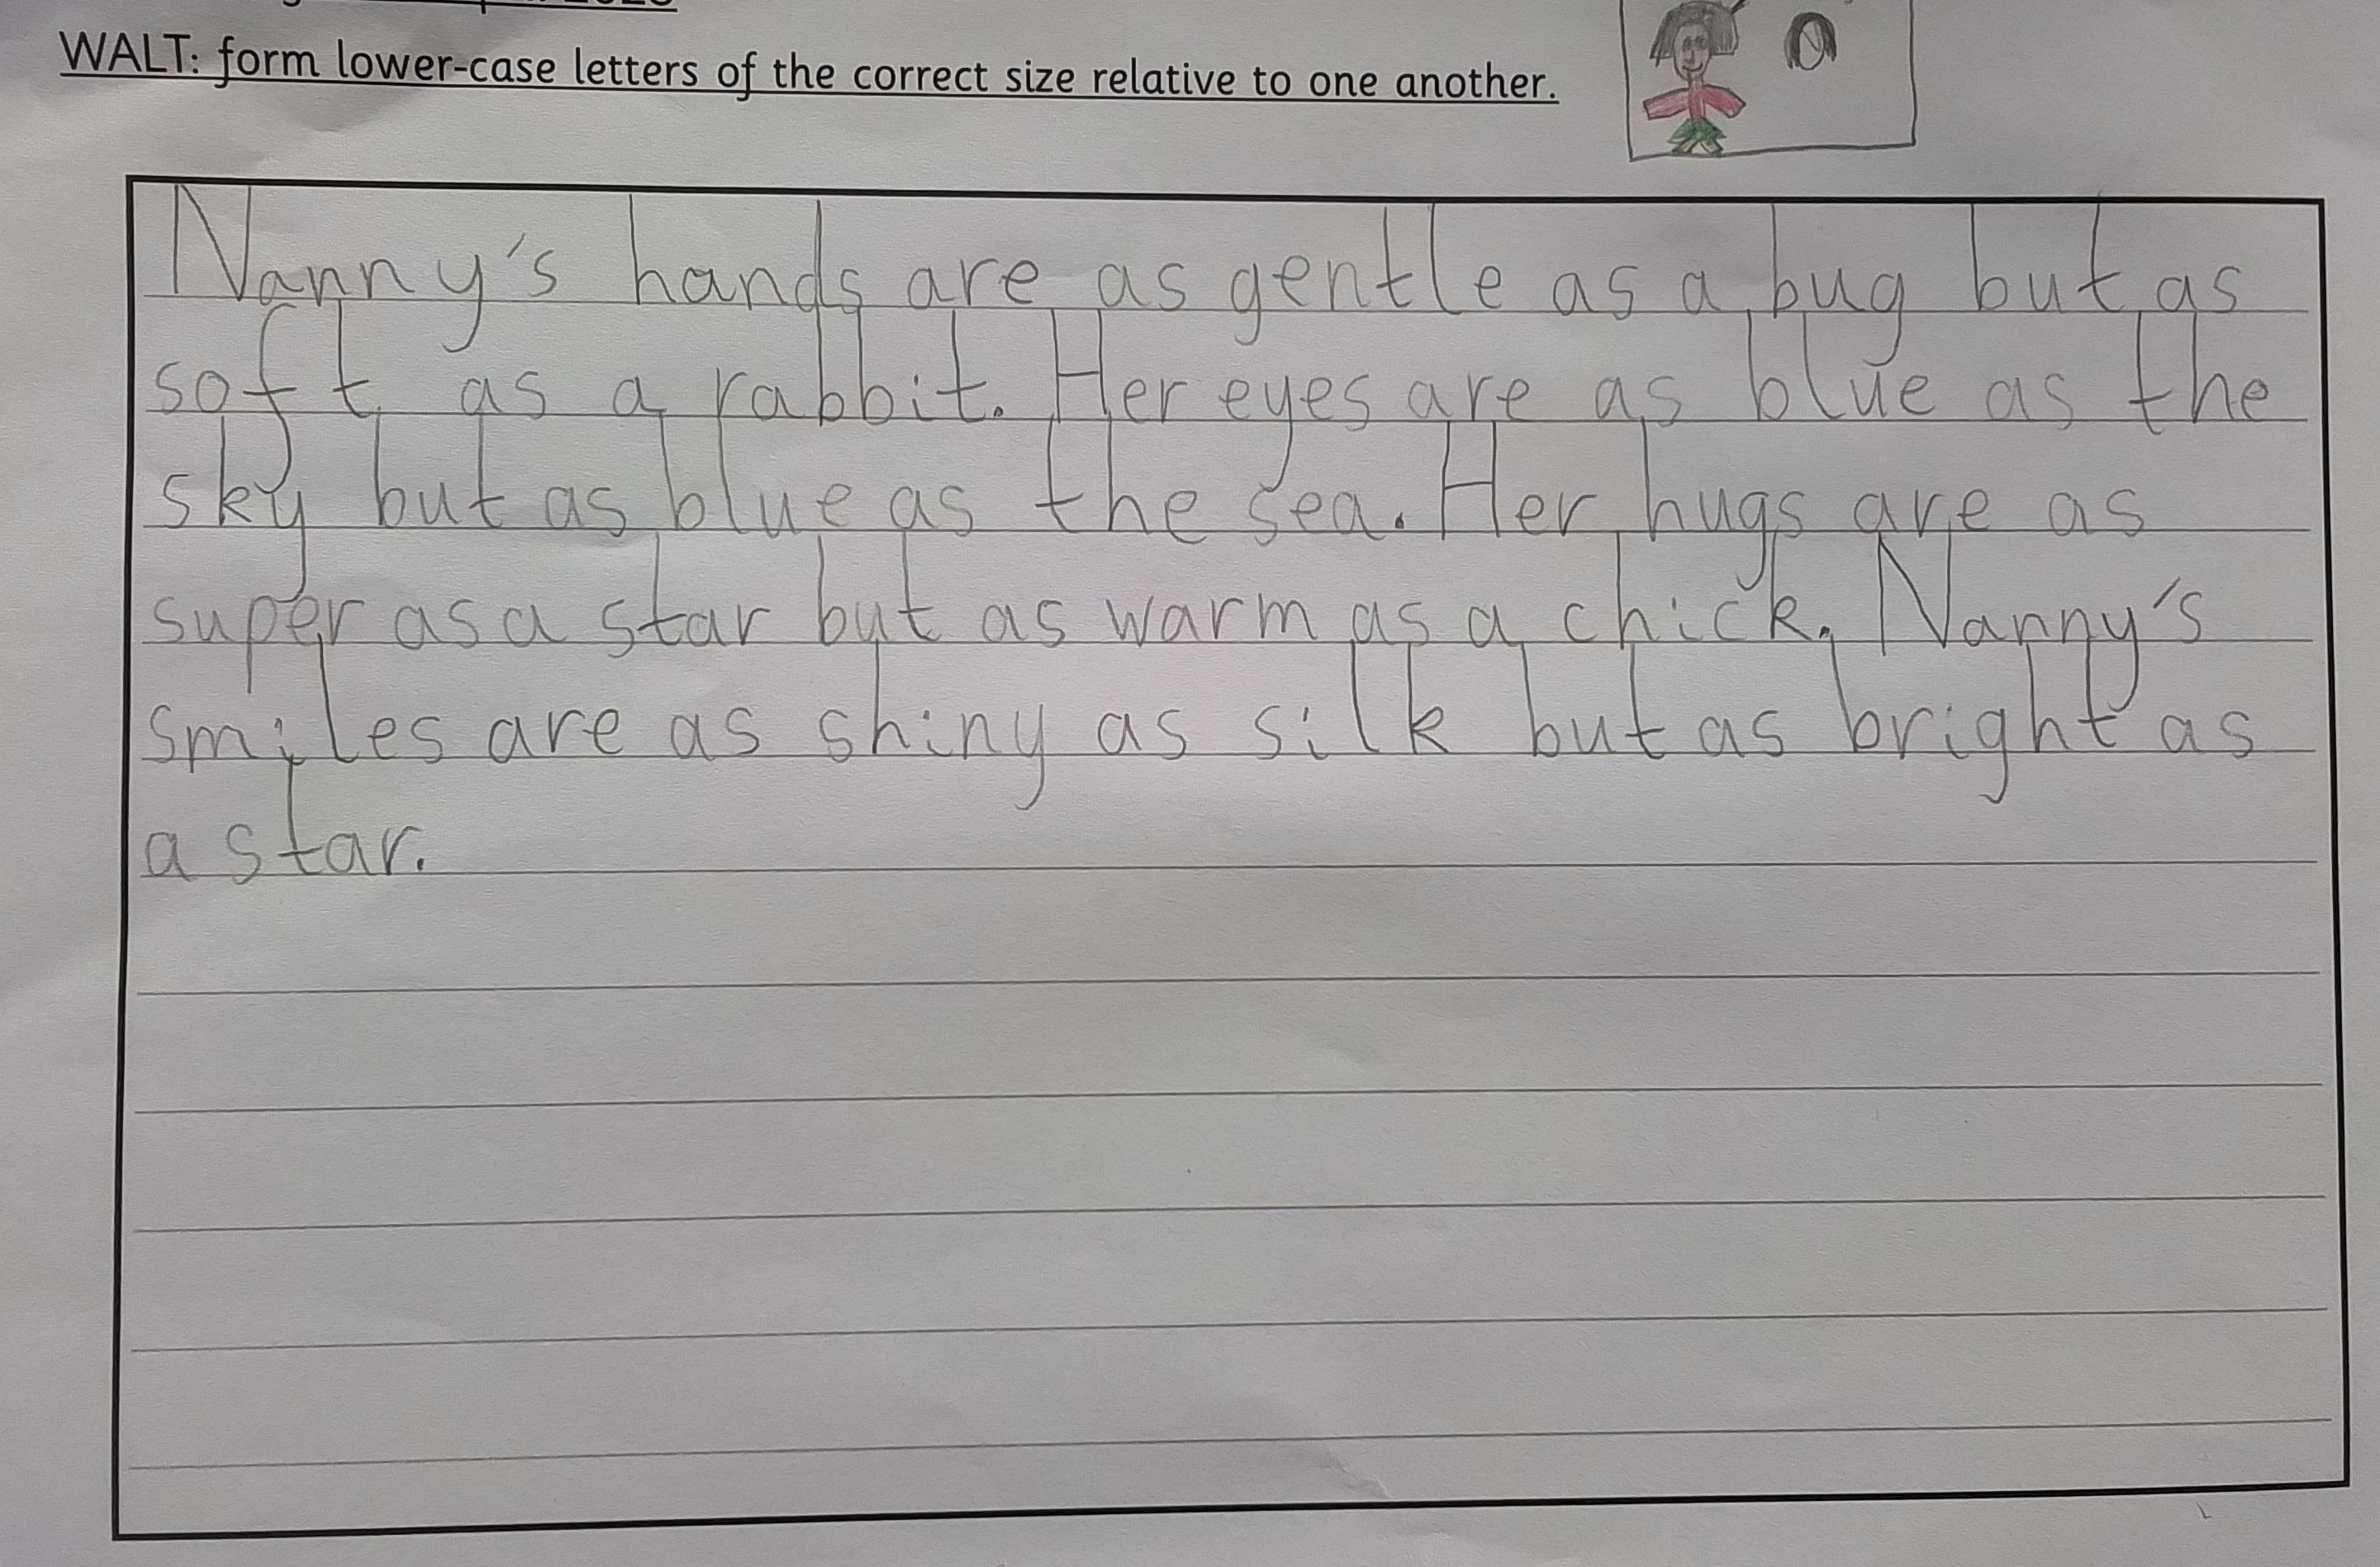 WALT: form lower-case letters of the correct size relative to one another.
Nanny's hands are as gentle as a bug but as
soft as a rabbit. Her eyes are as blue as the
sky but as blue as the sea. Her hugs are as
super as a star but as warm as a chick. Nanny's
smiles are as shiny as silk but as bright as
a star.